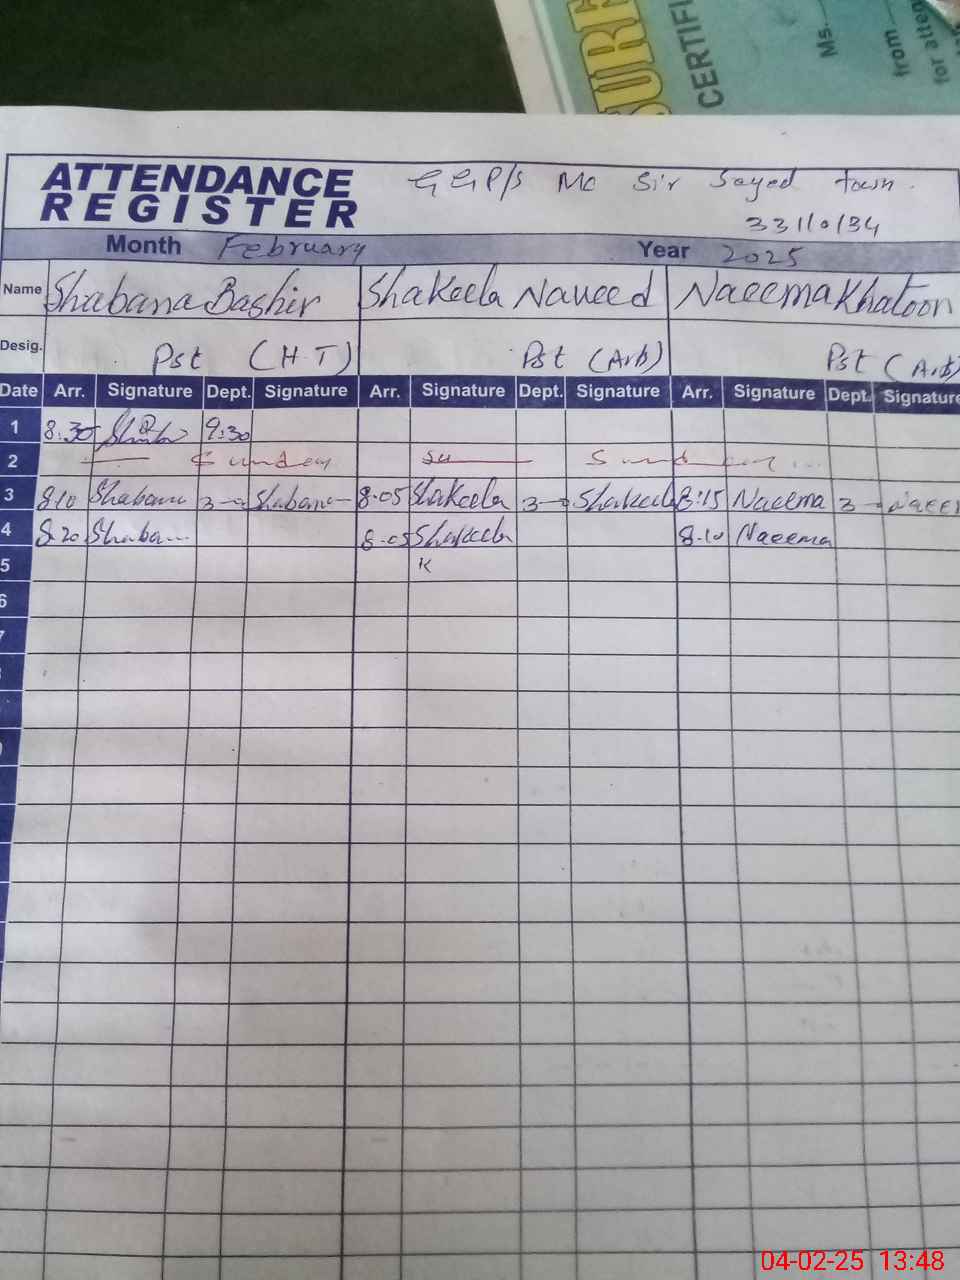 SURE
CERTIFI
Ms.
from
for atten
ATTENDANCE
REGISTER
GGP/S Mc Sir Sayed town.
33110134
Month February Year 2025
Name Shabana Bashir Shakeela Naveed Naeema Khatoon
Desig. Pst (H.T) Pst (Arb) Pst (Arb)
Date Arr. Signature Dept. Signature Arr. Signature Dept. Signature Arr. Signature Dept. Signature
1 8:30 9:30
2 Sunday Su Sunday
3 8.10 Shabana 3 Shabana 8.05 Shakeela 3 Shakeela 8:15 Naeema 3 Naeem
4 8.20 Shaba 8.05 Shakeela 8.10 Naeema
5 K
6
7
04-02-25 13:48